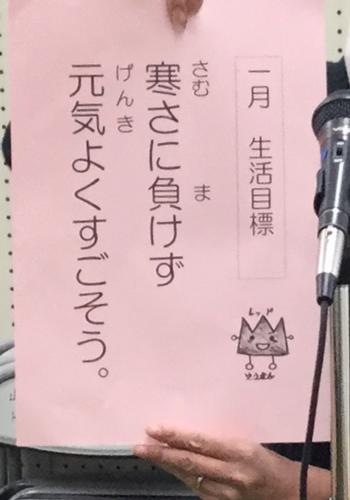 一月 生活目標
さむ ま
寒さに負けず
げんき
元気よくすごそう。
レッド